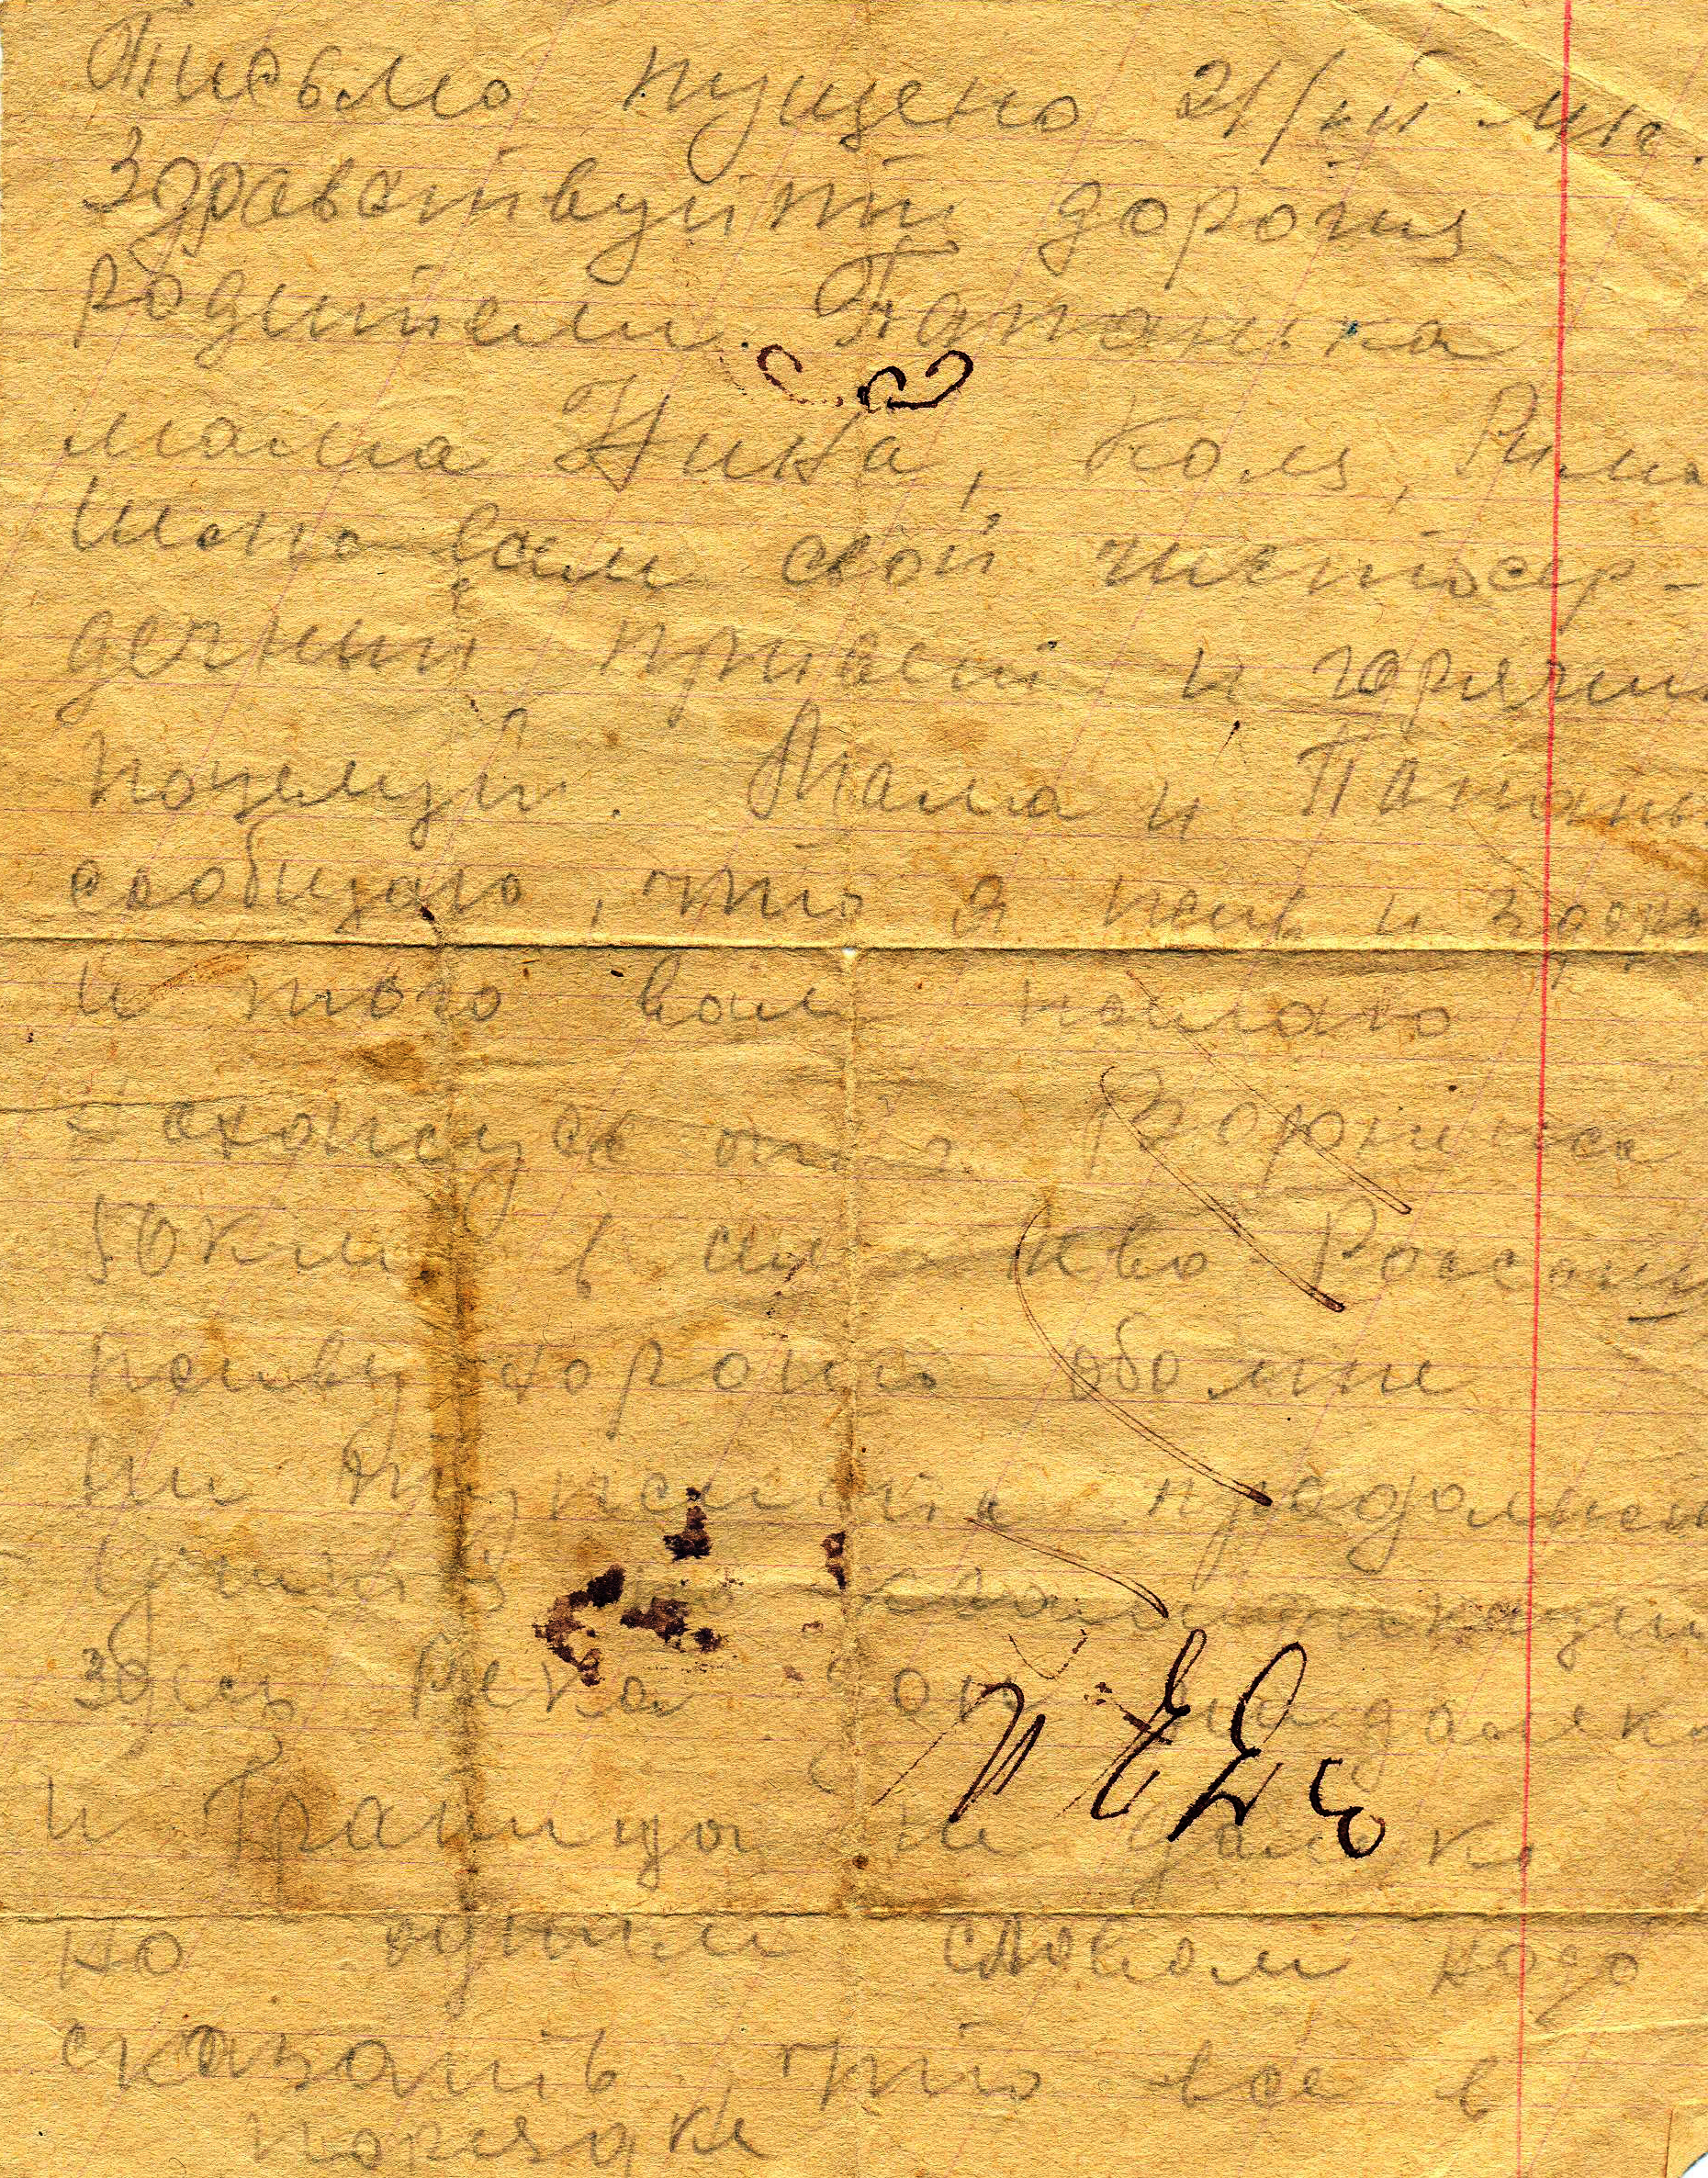 Письмо пущено 21/
Здравствуйти дорогия
Родители. Папанька
мама Нина, Коля, Рима
Шлю вам свой чистосер-
дечный привет и горячий
поцелуй. Мама и Папань
сообщаю, что я жив и здоров
и того вам желаю
нахожусь от г. Воронежа
50 км в
живу хорошо обо мне
ни тужити продолжаю

здесь Река Дон не далеко
и Граница не далеко
но одним словом надо
сказать что все в
порядки